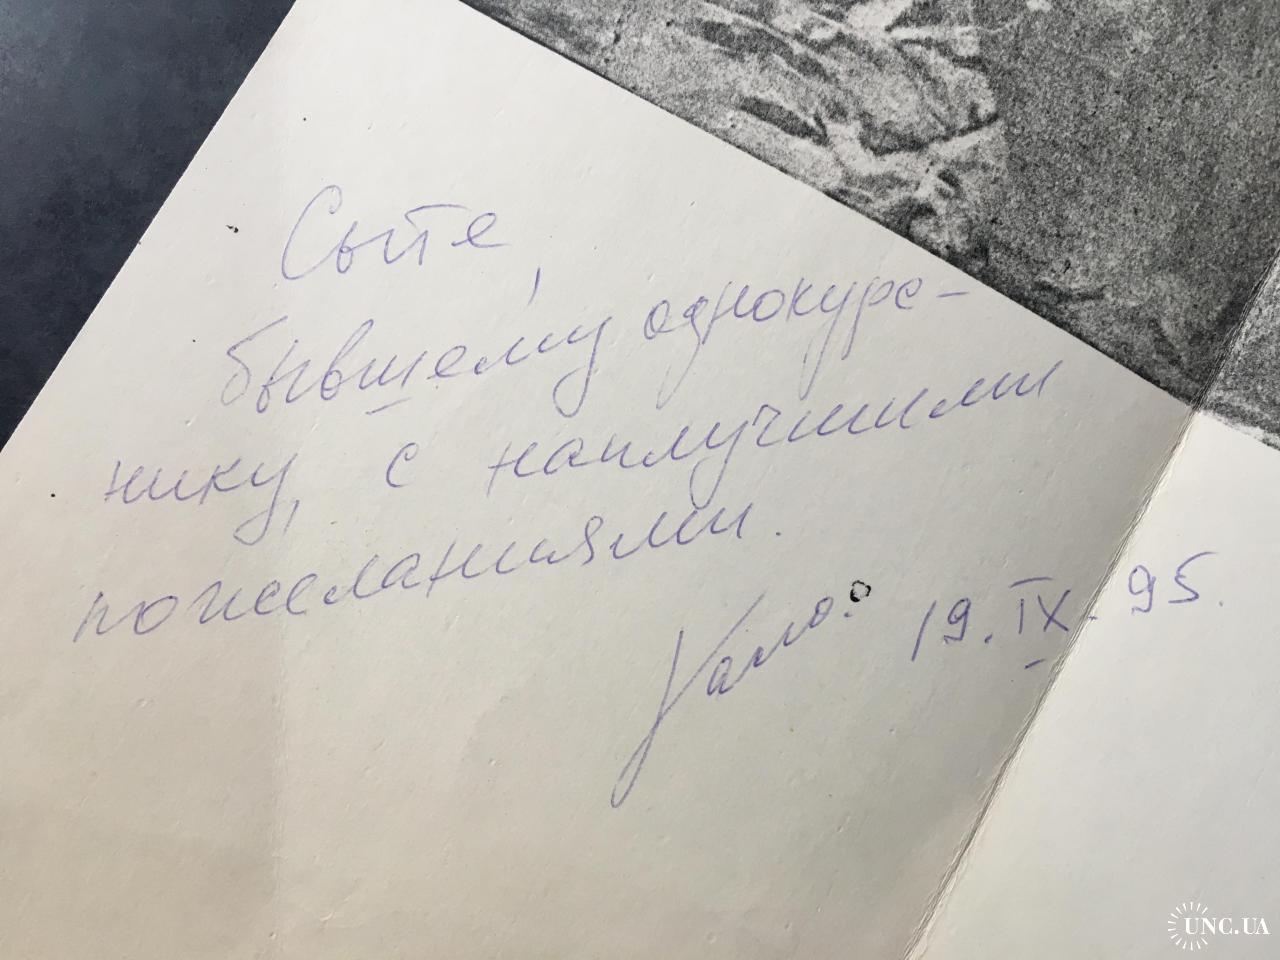 Сыте,
бывшему однокурс-
нику, с наилучшими
пожеланиями.
19.IX.95.
UNC.UA